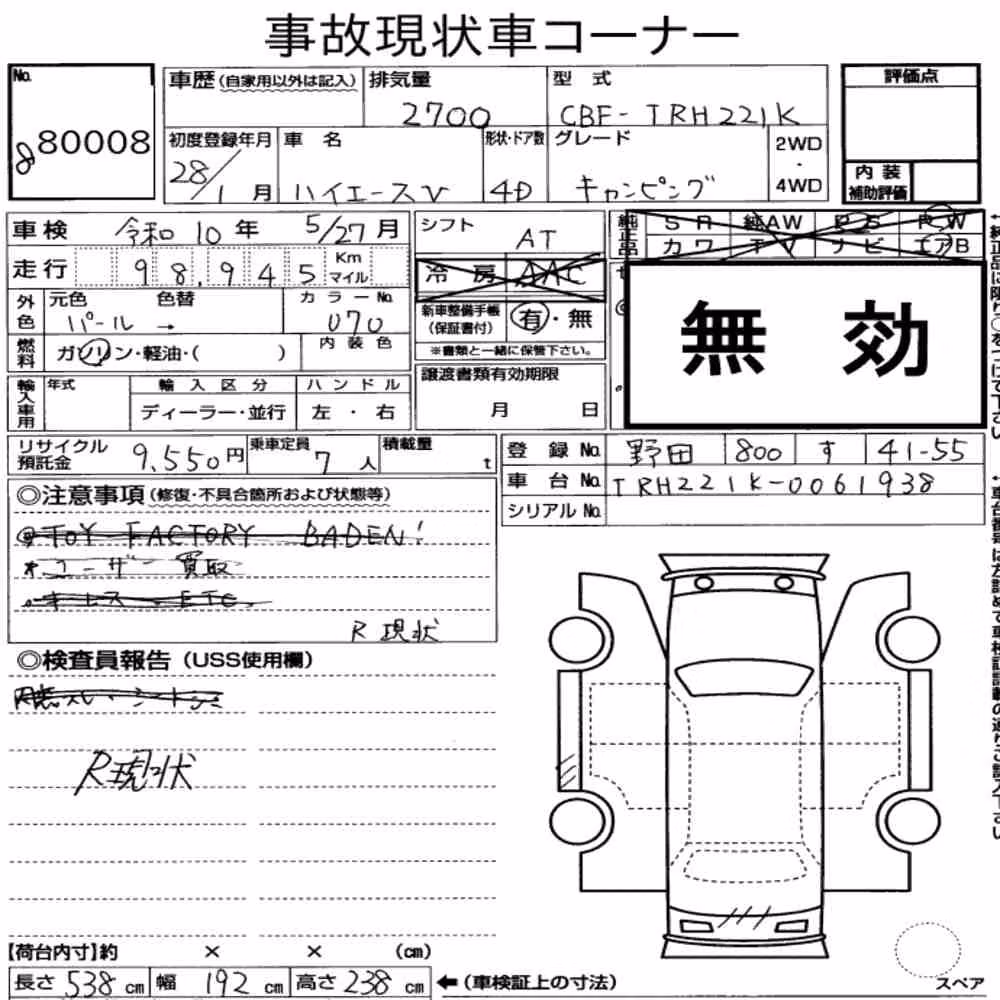 事故現状車コーナー
No.
80008
車歴(自家用以外は記入)
排気量
2700
型式
CBF-TRH221K
評価点
内装
補助評価
初度登録年月
28/1月
車名
ハイエースV
形状・ドア数
4D
グレード
キャンピング
2WD
・
4WD
車検 令和10年 5/27月
走行 98,945 Km マイル
外色
元色 パール →
色替
カラーNo.
070
燃料
ガソリン・軽油・( )
内装色
輸入車用
年式
輸入区分
ディーラー・並行
ハンドル
左・右
シフト
AT
冷房 AAC
新車整備手帳
(保証書付)
有・無
※書類と一緒に保管下さい。
譲渡書類有効期限
月 日
純正品
SR 純AW PS PW
カワ TV ナビ エアB
無効
リサイクル
預託金
9,550円
乗車定員
7人
積載量
t
登録No. 野田 800 す 41-55
車台No. TRH221K-0061938
シリアルNo.
◎注意事項(修復・不具合箇所および状態等)
TOY FACTORY BADEN!
ユーザー買取
キーレス.ETC.
R現状
◎検査員報告(USS使用欄)
R現状
【荷台内寸】約 × × (cm)
長さ 538cm 幅 192cm 高さ 238cm
←(車検証上の寸法)
スペア